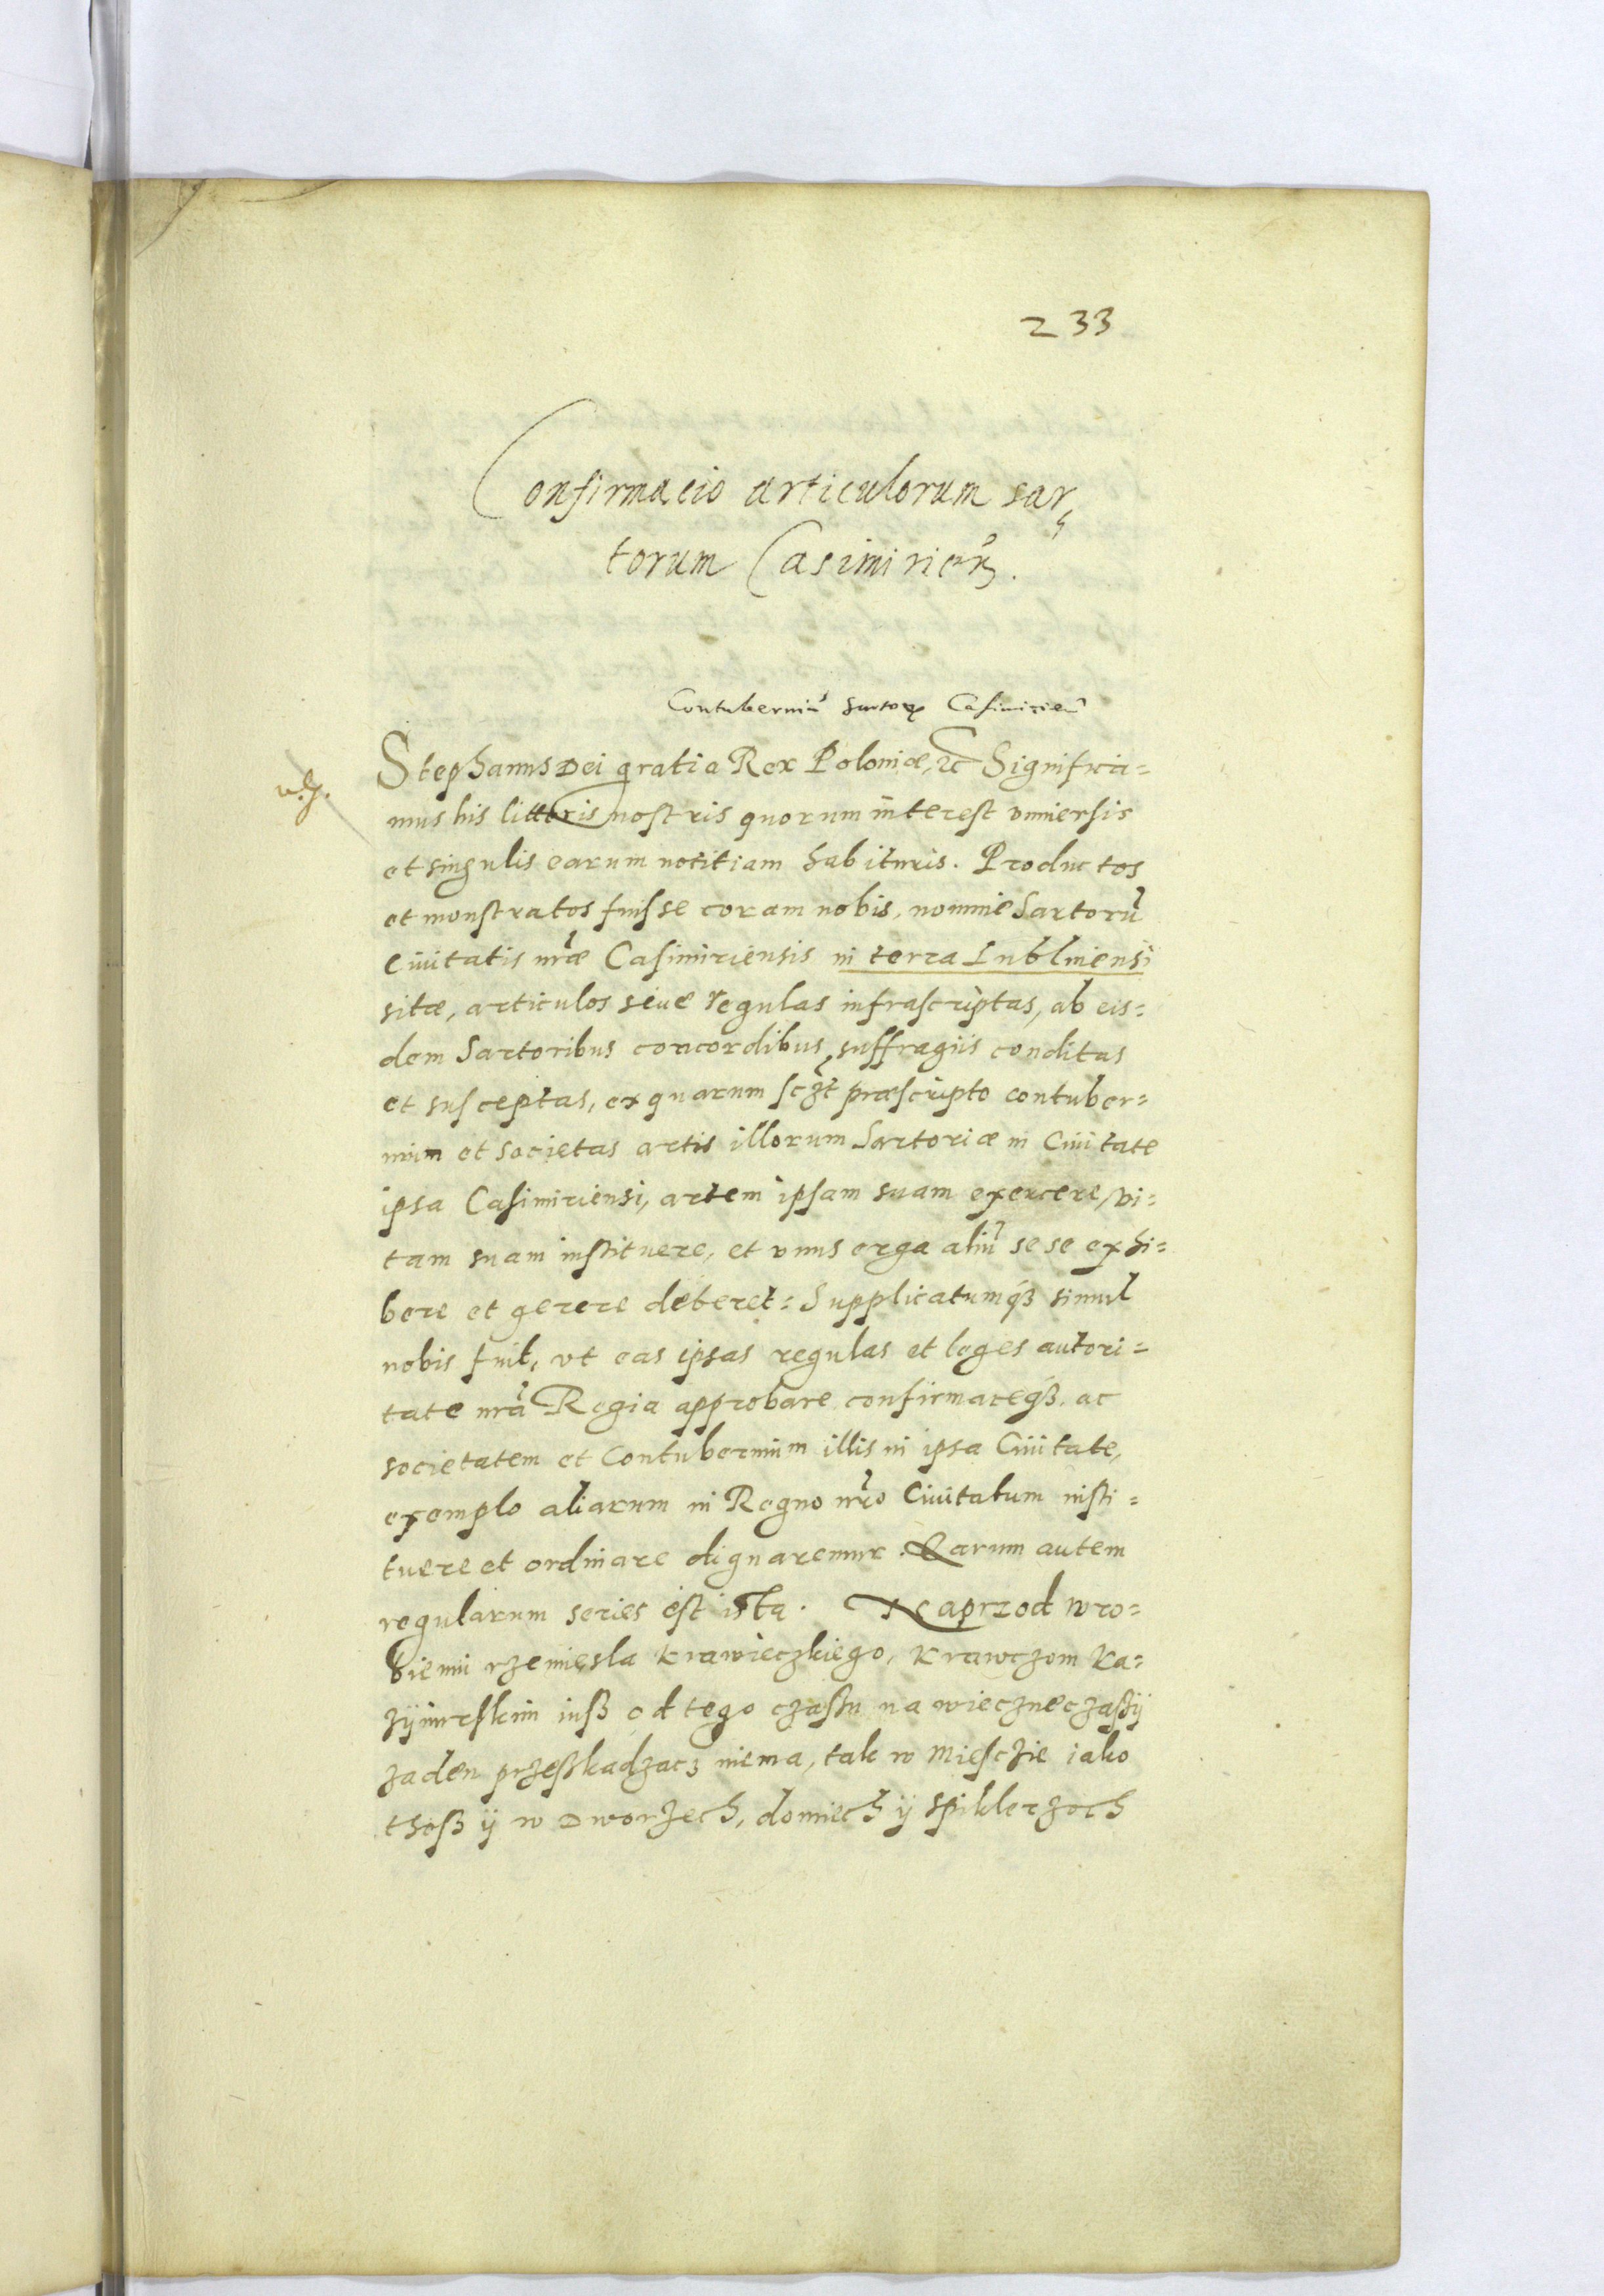 233
Confirmacio articulorum sar
torum Casimirien̄.
Contuberniū sartorꝝ Casimirien̄
Stephanus Dei gratia Rex Poloniæ, ꝛc Significa=
mus his litteris nostris quorum interest vniuersis
et singulis earum notitiam habituris. Productos
et monstratos fuisse coram nobis, nomine Sartorū
Ciuitatis nr̃æ Casimiriensis in terra Lublinensi
sitæ, articulos seiue regulas infrascriptas, ab eis=
dem Sartoribus concordibus suffragiis conditas
et susceptas, ex quarum sczt præscripto contuber=
nium et societas artis illorum Sartoriæ in Ciuitate
ipsa Casimiriensi, artem ipsam suam exercere, vi=
tam suam instituere, et vnus erga aliū se se exhi=
bere et gerere deberet: Supplicatumqȝ simul
nobis fuit, vt eas ipsas regulas et leges autori=
tate nr̃a Regia approbare confirmareqȝ. ac
societatem et Contubernium illis in ipsa Ciuitate,
exemplo aliarum in Regno nr̃o Ciuitatum insti=
tuere et ordinare dignaremur. Earum autem
regularum series est ista. Naprzod w ro=
bieniu rzemięsla krawieczkiego, krawczom Ka=
zÿmirskim iuß od tego czaßu na wieczne czaßÿ
zaden przeßkadzacz niema, tak w Miesczie iako
theß ÿ w Dworzech, domiech ÿ Spiklerzoch